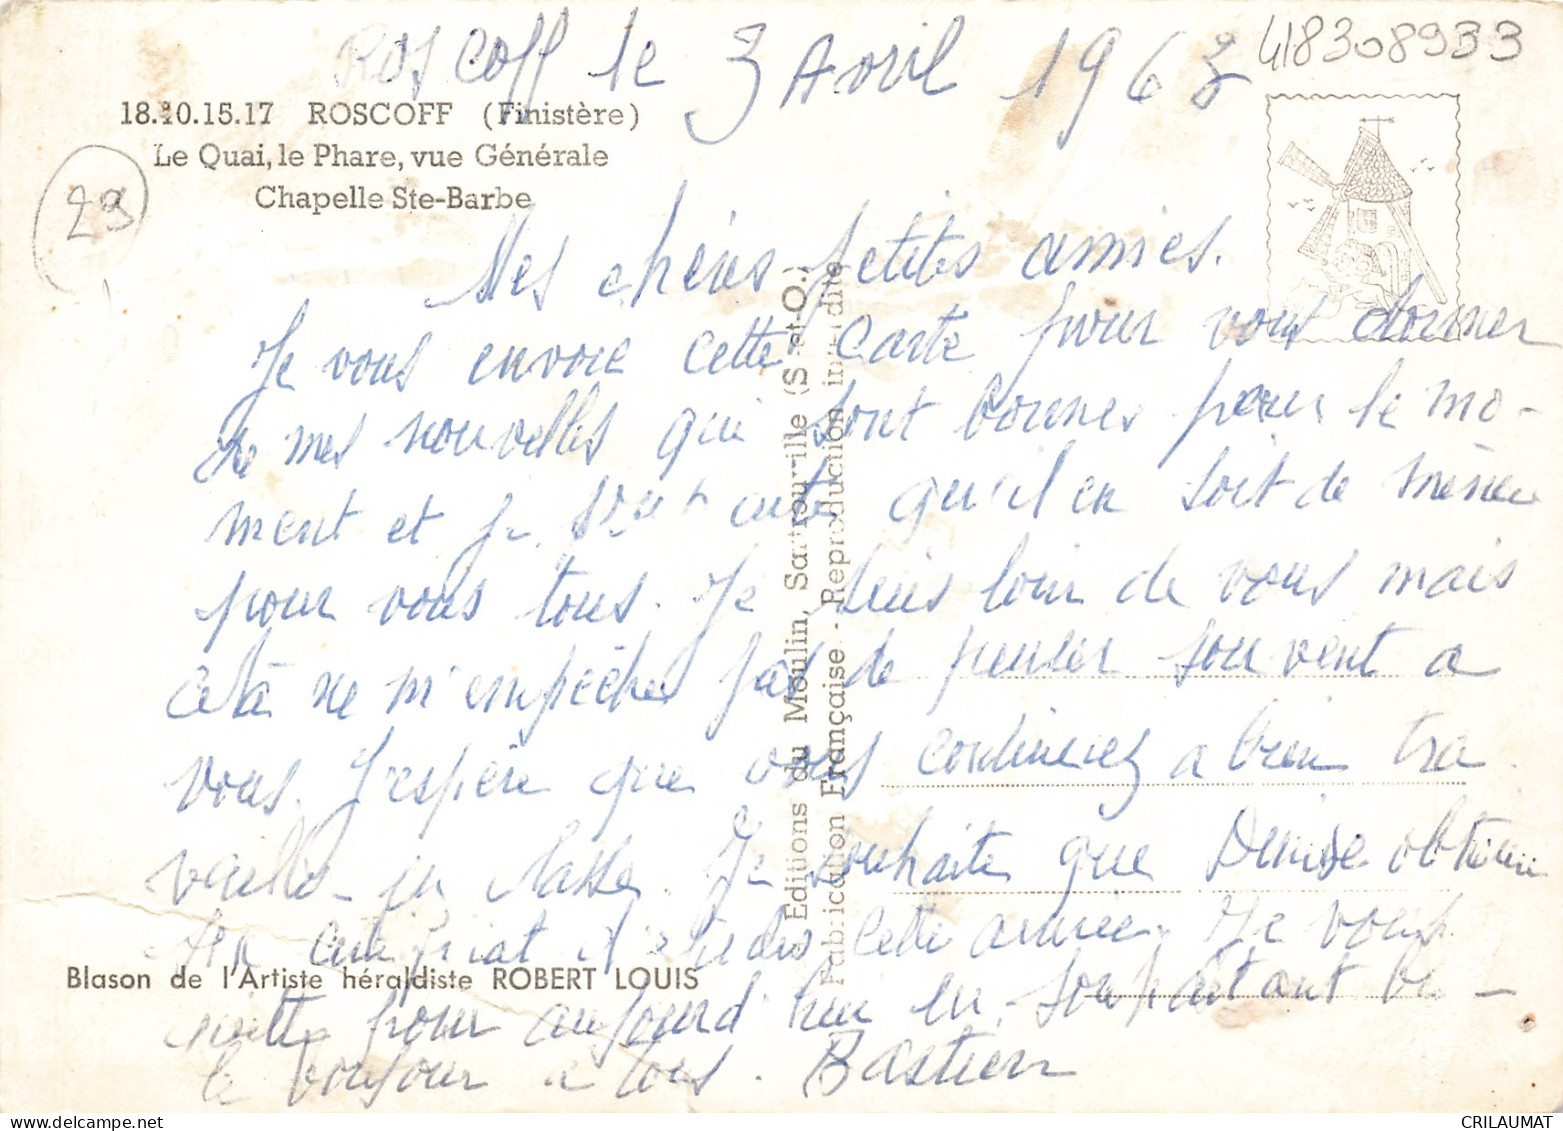 Roscoff le 3 Avril 1963
418308933
18.10.15.17 ROSCOFF (Finistère)
Le Quai, le Phare, vue Générale
Chapelle Ste-Barbe
29
Mes chères petites amies.
Je vous envoie cette carte pour vous donner
de mes nouvelles qui sont bonnes pour le mo-
ment et je souhaite qu'il en soit de même
pour vous tous. Je suis loin de vous mais
cela ne m'empêche pas de penser souvent a
vous. J'espère que vous continuez a bien tra
vailler en classe. Je souhaite que Denise obtienne
son certificat d'études cette année. Je vous
quitte pour aujourd'hui en souhaitant bi-
le bonjour a tous. Bastien
Editions du Moulin, Sartrouville (S.-et-O.)
Fabrication Française - Reproduction interdite
Blason de l'Artiste héraldiste ROBERT LOUIS
CRILAUMAT